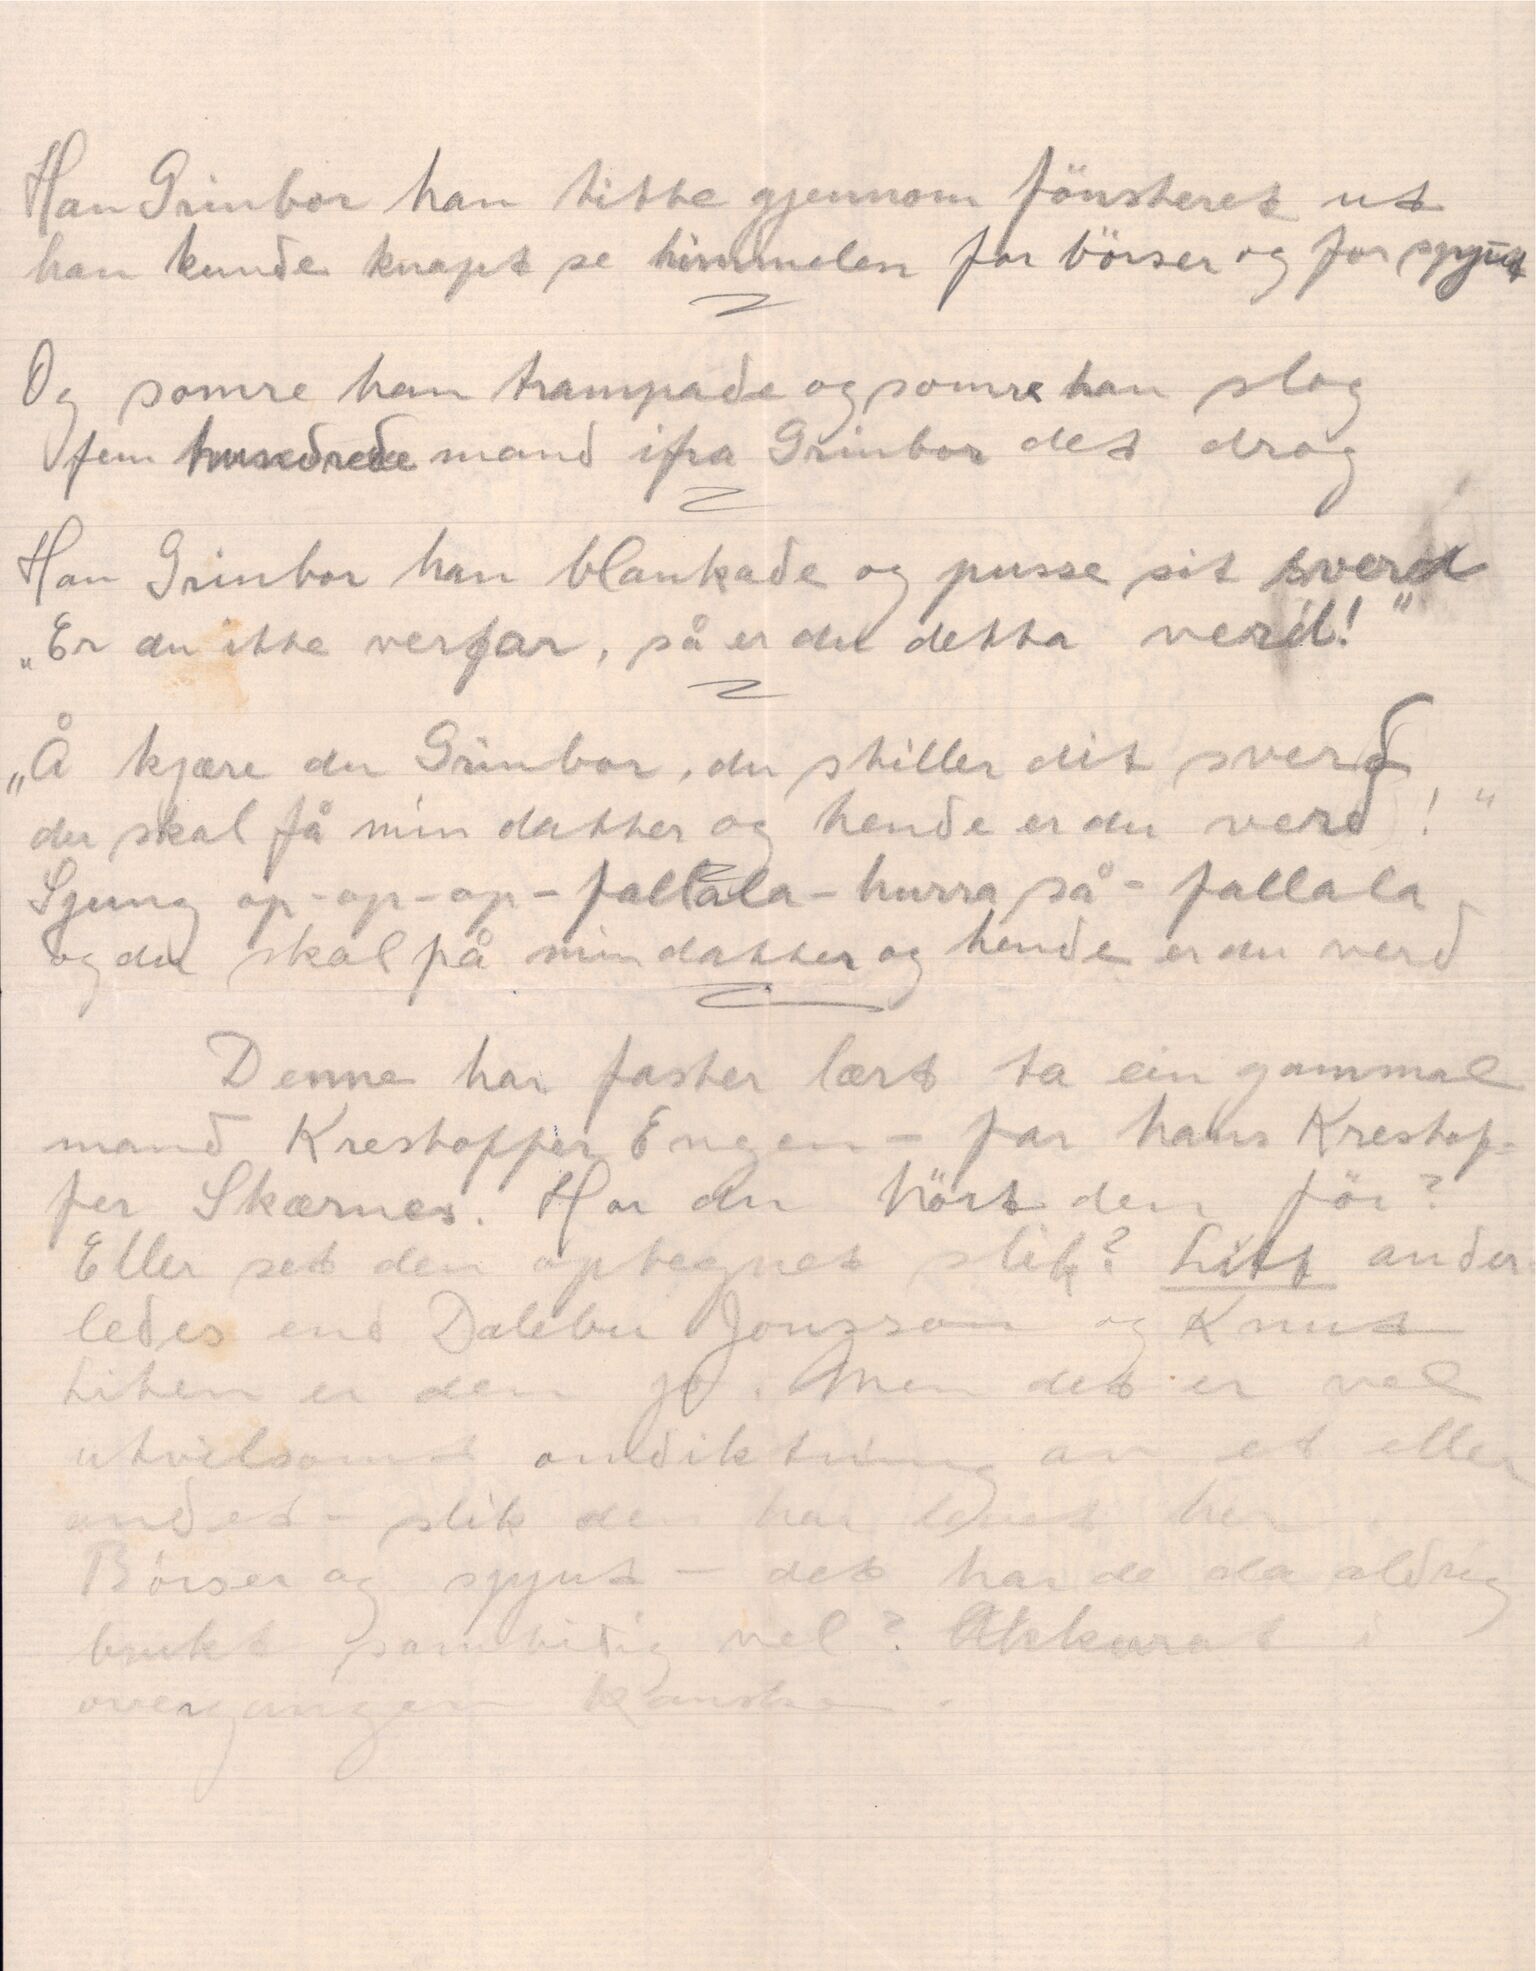 Han Grimbor han titte gjennom fönsteret ut
han kunde knapt se himmelen for börser og for spyut
Og somre han trampade og somre han slog
fem hundrede mand ifra Grimbor det drog
Han Grimbor han blankade og pusse sit sverd
„Er du ikke verfar, så er du detta verd!"
„Å kjære du Grimbor, du stiller dit sverd
du skal få min datter og hende er du verd!"
Sjung op-op-op-fallala-hurra så-fallala
og du skal få min datter og hende er du verd
Denne har faster lært ta ein gammal
mand Krestoffer Engen – far hans Krestof-
fer Skærnes. Har du hört den för?
Eller set den optegnet slik? Litt ander
ledes end Dalebu Jonsson og Knut
Liten er den jo. Men det er vel
utvilsomt omdiktning av et eller
andet – slik den har levet her.
Börser og spyut – det har de da aldrig
brukt samtidig vel? Akkurat i
overgangen kanske.